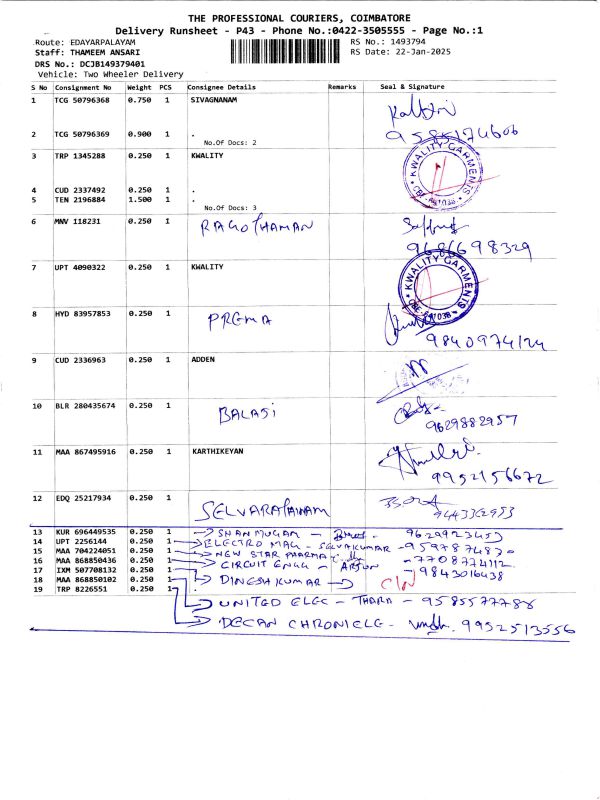 THE PROFESSIONAL COURIERS, COIMBATORE
Delivery Runsheet - P43 - Phone No.:0422-3505555 - Page No.:1
Route: EDAYARPALAYAM RS No.: 1493794
Staff: THAMEEM ANSARI RS Date: 22-Jan-2025
DRS No.: DCJB149379401
Vehicle: Two Wheeler Delivery
S No Consignment No Weight PCS Consignee Details Remarks Seal & Signature
1 TCG 50796368 0.750 1 SIVAGNANAM
2 TCG 50796369 0.900 1 .
No.Of Docs: 2
3 TRP 1345288 0.250 1 KWALITY
KWALITY GARMENTS
4 CUD 2337492 0.250 1 .
5 TEN 2196884 1.500 1 .
No.Of Docs: 3
6 MNV 118231 0.250 1
9686698329
7 UPT 4090322 0.250 1 KWALITY
KWALITY GARMENTS
8 HYD 83957853 0.250 1 PREMA
9840974124
9 CUD 2336963 0.250 1 ADDEN
10 BLR 280435674 0.250 1 BALAJI
9629882957
11 MAA 867495916 0.250 1 KARTHIKEYAN
9952156672
12 EDQ 25217934 0.250 1
9443362953
13 KUR 696449535 0.250 1 SHANMUGAM - 9629923453
14 UPT 2256144 0.250 1 ELECTRO MAG - SELVAKUMAR -
15 MAA 704224051 0.250 1 NEW STAR PHARMA - 7708774112
16 MAA 868850436 0.250 1 CIRCUIT ENGG - ARJUN 9843016438
17 IXM 507708132 0.250 1 DINESHKUMAR
18 MAA 868850102 0.250 1 UNITED ELEC - THARA - 9585577788
19 TRP 8226551 0.250 1 DECAN CHRONICLE - 9952513556